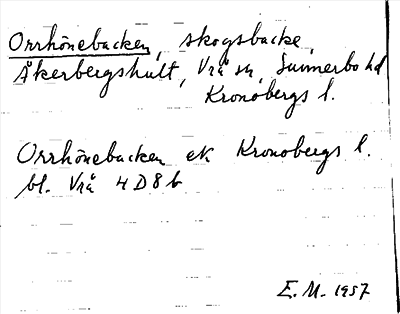 Orrhönebacken, skogsbacke,
Åkerbergshult, Vrå sn, Sunnerbo hd
Kronobergs l.
Orrhönebacken ek Kronobergs l.
bl. Vrå 4D8b
E.M. 1957